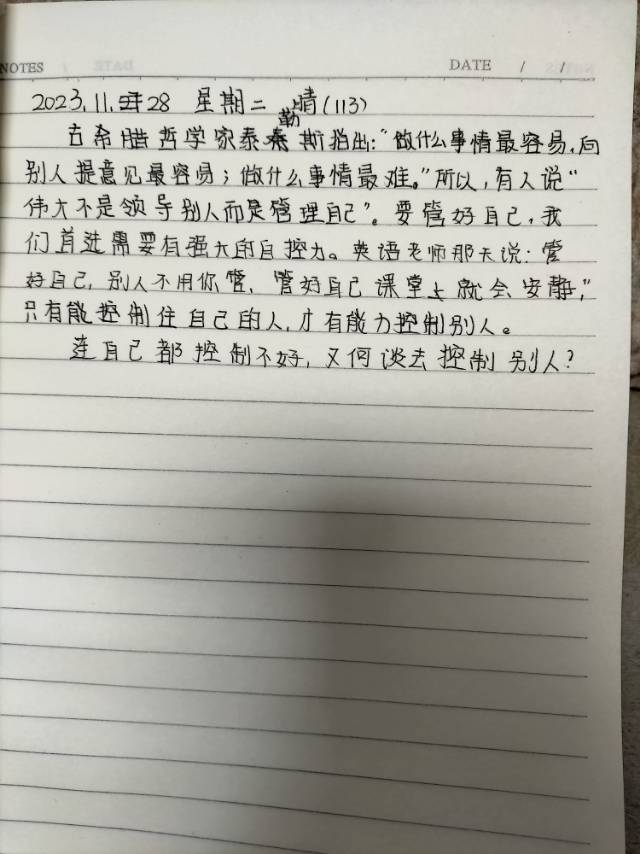 NOTES DATE / /
2023.11.28 星期二 晴(113)
古希腊哲学家泰勒斯指出:“做什么事情最容易,向
别人提意见最容易;做什么事情最难。”所以,有人说“
伟大不是领导别人而是管理自己”。要管好自己,我
们首进需要有强大的自控力。英语老师那天说:管
好自己,别人不用你管、管好自己课堂上就会安静,”
只有能控制住自己的人,才有能力控制别人。
连自己都控制不好,又何谈去控制别人?